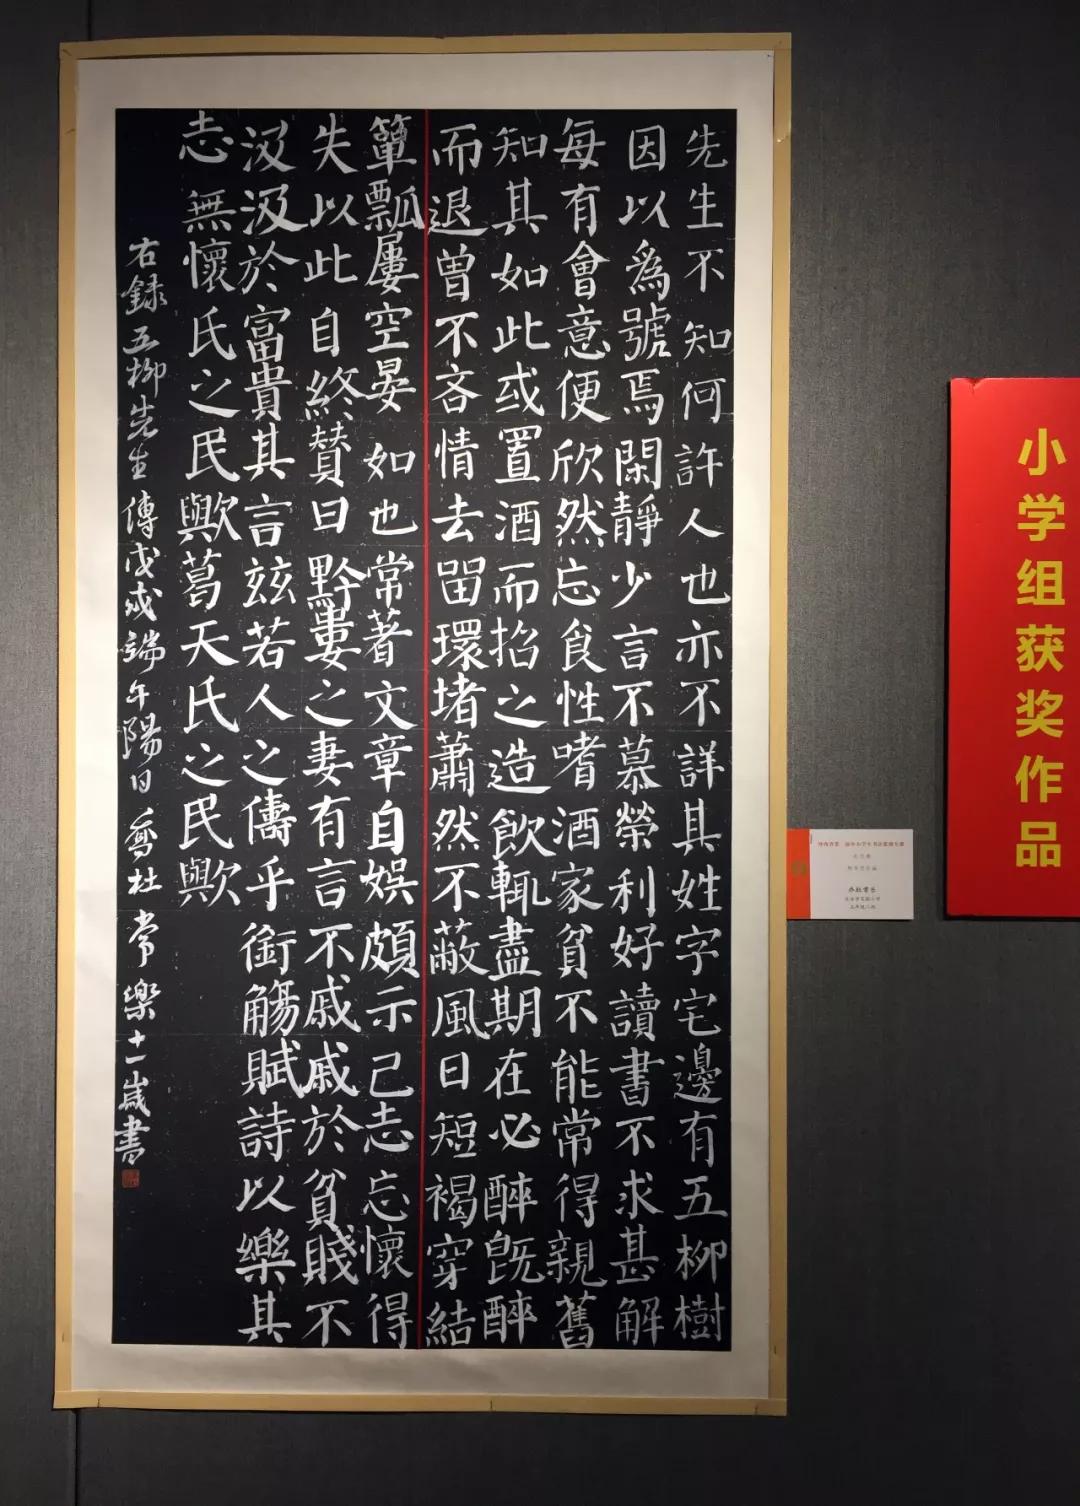 先生不知何許人也亦不詳其姓字宅邊有五柳樹
因以為號焉閑靜少言不慕榮利好讀書不求甚解
每有會意便欣然忘食性嗜酒家貧不能常得親舊
知其如此或置酒而招之造飲輒盡期在必醉既醉
而退曾不吝情去留環堵蕭然不蔽風日短褐穿結
簞瓢屢空晏如也常著文章自娛頗示己志忘懷得
失以此自終贊曰黔婁之妻有言不戚戚於貧賤不
汲汲於富貴其言玆若人之儔乎銜觴賦詩以樂其
志無懷氏之民歟葛天氏之民歟
右録五柳先生傳戊戌端午陽日喬杜常樂十一歲書
小学组获奖作品
乔杜常乐